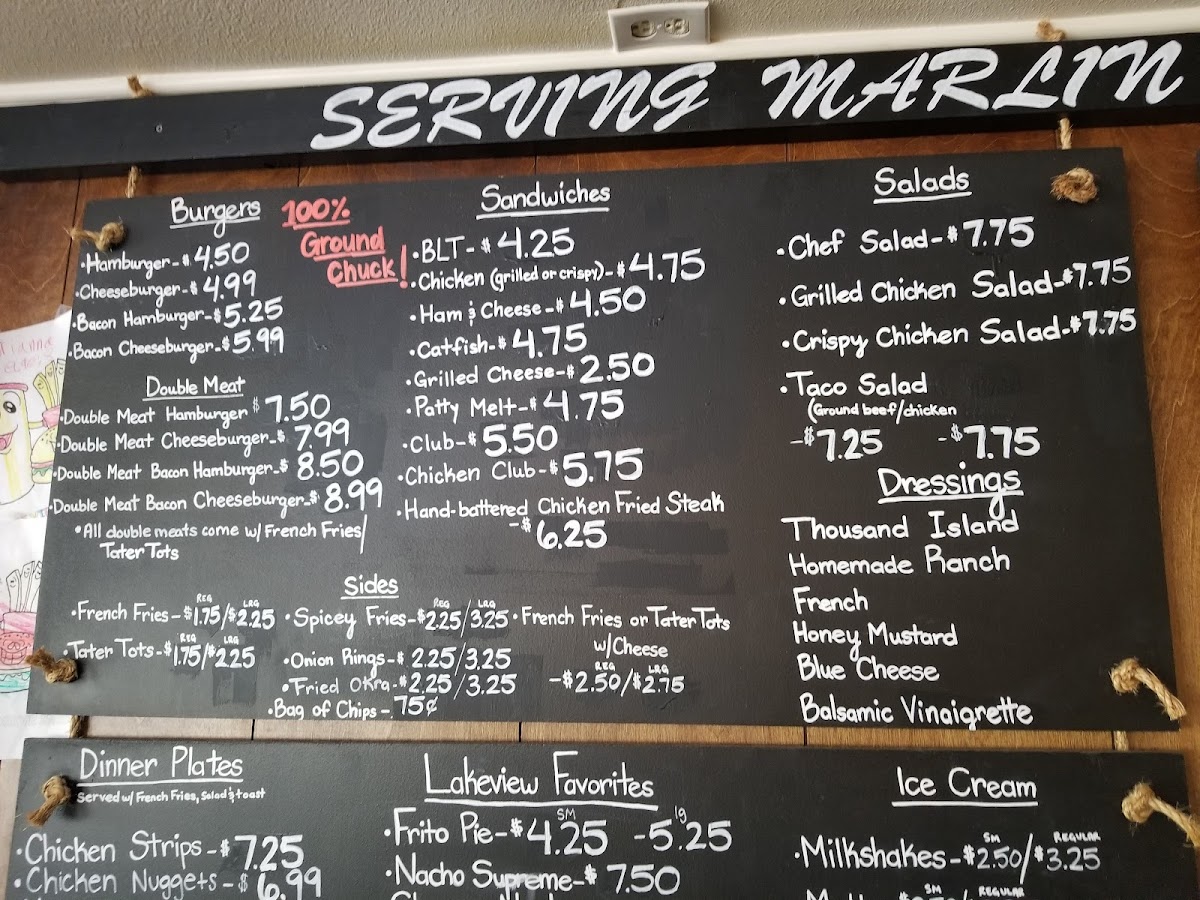 SERVING MARLIN
Burgers
100%
Ground
Chuck!
•Hamburger-$4.50
•Cheeseburger-$4.99
•Bacon Hamburger-$5.25
•Bacon Cheeseburger-$5.99
Double Meat
•Double Meat Hamburger $7.50
•Double Meat Cheeseburger-$7.99
•Double Meat Bacon Hamburger-$8.50
•Double Meat Bacon Cheeseburger-$8.99
•All double meats come w/ French Fries/
Tater Tots
Sandwiches
•BLT-$4.25
•Chicken (grilled or crispy)-$4.75
•Ham & Cheese-$4.50
•Catfish-$4.75
•Grilled Cheese-$2.50
•Patty Melt-$4.75
•Club-$5.50
•Chicken Club-$5.75
•Hand-battered Chicken Fried Steak
-$6.25
Salads
•Chef Salad-$7.75
•Grilled Chicken Salad-$7.75
•Crispy Chicken Salad-$7.75
•Taco Salad
(Ground beef/chicken
-$7.25 -$7.75
Dressings
Thousand Island
Homemade Ranch
French
Honey Mustard
Blue Cheese
Balsamic Vinaigrette
Sides
REG LRG
•French Fries-$1.75/$2.25
REG LRG
•Tater Tots-$1.75/$2.25
REG LRG
•Spicey Fries-$2.25/3.25
•Onion Rings-$2.25/3.25
•Fried Okra-$2.25/3.25
•Bag of Chips-.75¢
•French Fries or Tater Tots
w/Cheese
REG LRG
-$2.50/$2.75
Dinner Plates
served w/ French Fries, Salad & toast
•Chicken Strips-$7.25
•Chicken Nuggets-$6.99
Lakeview Favorites
SM lg
•Frito Pie-$4.25 -5.25
•Nacho Supreme-$7.50
Ice Cream
SM REGULAR
•Milkshakes-$2.50/$3.25
SM REGULAR